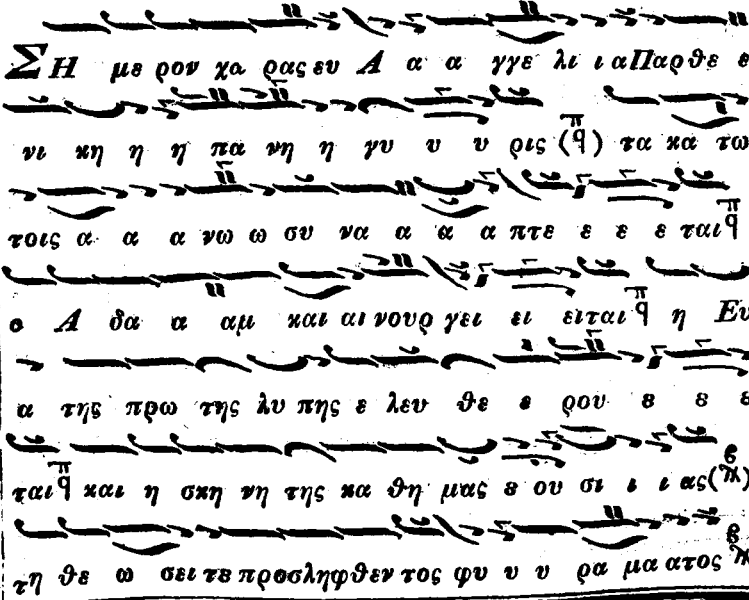 ΣΗ με ρον χα ρας ευ Α α α γγε λι ι α Παρθε ε
νι κη η η πα νη η γυ υ υ ρις (π q) τα κα τω
τοις α α α νω ω συ να α α α πτε ε ε ε ται π q
ο Α δα α αμ και αι νουρ γει ει ειται π q η Ευ
α της πρω της λυ πης ε λευ θε ε ρου ε ε ε
ται π q και η σκη νη της κα θη μας ε ου σι ι ι ας (
τη θε ω σει τε προσληφθεν τος φυ υ υ ρα μα ατος